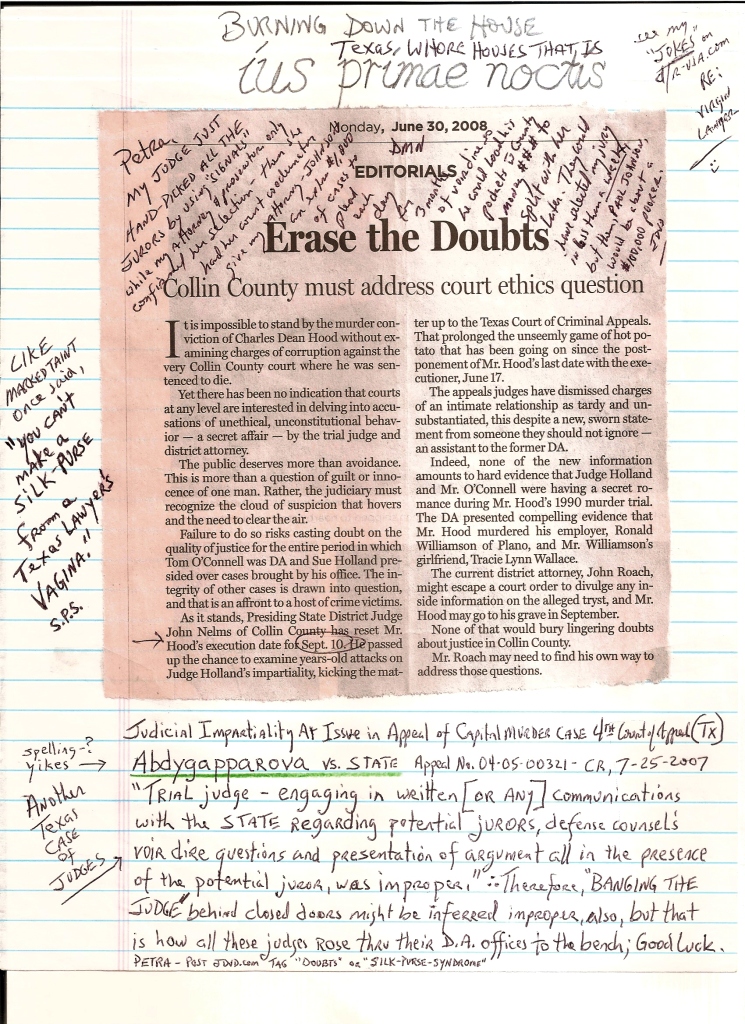 BURNING DOWN THE HOUSE
TEXAS, WHORE HOUSES THAT, IS
ius primae noctis
see my
"JOKES" on
RE:
VIRGIN
LAWYER
Monday, June 30, 2008 DMN
EDITORIALS
Petra-
MY JUDGE JUST
HAND-PICKED ALL THE
JURORS by using "SIGNALS"
while my attorney & prosecutor only
confirmed her selection, then she
had her court coordinator
give my attorney JOHNSON
an extra $1,000
of cases to
plead
each
day for
3 months
of voir dire so
he could load his
pockets w/ County
money to
split with her
later. They could
have selected my jury
in less than a week,
but then Paul Johnson
would be about a
$100,000 poorer.
JDVD
Erase the Doubts
Collin County must address court ethics question
It is impossible to stand by the murder con-
viction of Charles Dean Hood without ex-
amining charges of corruption against the
very Collin County court where he was sen-
tenced to die.
Yet there has been no indication that courts
at any level are interested in delving into accu-
sations of unethical, unconstitutional behav-
ior — a secret affair — by the trial judge and
district attorney.
The public deserves more than avoidance.
This is more than a question of guilt or inno-
cence of one man. Rather, the judiciary must
recognize the cloud of suspicion that hovers
and the need to clear the air.
Failure to do so risks casting doubt on the
quality of justice for the entire period in which
Tom O'Connell was DA and Sue Holland pre-
sided over cases brought by his office. The in-
tegrity of other cases is drawn into question,
and that is an affront to a host of crime victims.
As it stands, Presiding State District Judge
John Nelms of Collin County has reset Mr.
Hood's execution date for Sept. 10. He passed
up the chance to examine years-old attacks on
Judge Holland's impartiality, kicking the mat-
ter up to the Texas Court of Criminal Appeals.
That prolonged the unseemly game of hot po-
tato that has been going on since the post-
ponement of Mr. Hood's last date with the exe-
cutioner, June 17.
The appeals judges have dismissed charges
of an intimate relationship as tardy and un-
substantiated, this despite a new, sworn state-
ment from someone they should not ignore —
an assistant to the former DA.
Indeed, none of the new information
amounts to hard evidence that Judge Holland
and Mr. O'Connell were having a secret ro-
mance during Mr. Hood's 1990 murder trial.
The DA presented compelling evidence that
Mr. Hood murdered his employer, Ronald
Williamson of Plano, and Mr. Williamson's
girlfriend, Tracie Lynn Wallace.
The current district attorney, John Roach,
might escape a court order to divulge any in-
side information on the alleged tryst, and Mr.
Hood may go to his grave in September.
None of that would bury lingering doubts
about justice in Collin County.
Mr. Roach may need to find his own way to
address those questions.
LIKE
MARKED TAINT
once said,
"YOU CAN'T
make a
SILK-PURSE
from a
Texas LAWYER'S
VAGINA."
S.P.S.
Judicial Impartiality At Issue in Appeal of Capital MURDER CASE 4TH Court of Appeal (TX)
spelling-?
yikes →
Abdygapparova VS. STATE Appeal No. 04-05-00321-CR, 7-25-2007
Another
Texas
CASE
of
JUDGES
"TRIAL judge - engaging in written [OR ANY] communications
with the STATE Regarding potential JURORS, defense counsel's
voir dire questions and presentation of argument all in the presence
of the potential juror, was improper." ∴ Therefore, "BANGING THE
JUDGE" behind closed doors might be inferred improper, also, but that
is how all these judges Rose thru their D.A. offices to the bench; Good Luck.
PETRA - POST JDVD.com TAG "DOUBTS" or "SILK-PURSE-SYNDROME"